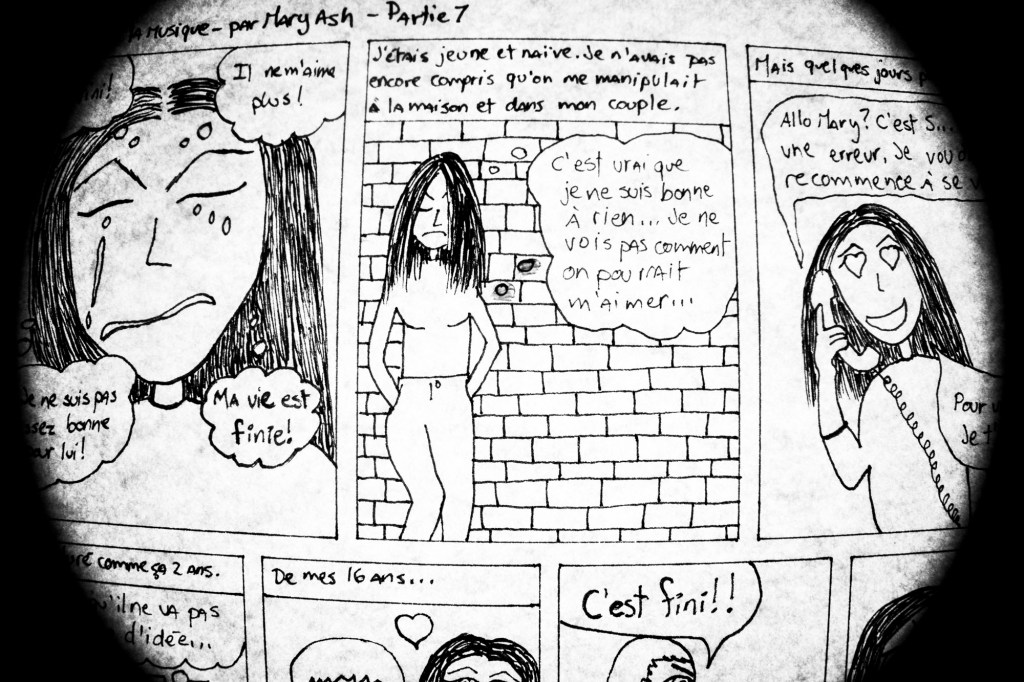 la Musique - par Mary Ash - Partie 7
Il ne m'aime
plus!
Je ne suis pas
assez bonne
pour lui!
Ma vie est
finie!
J'étais jeune et naïve. Je n'avais pas
encore compris qu'on me manipulait
à la maison et dans mon couple.
C'est vrai que
je ne suis bonne
à rien... Je ne
vois pas comment
on pourrait
m'aimer...
Mais quelques jours
Allo Mary? C'est S...
une erreur, Je
recommence à
Pour
Je
comme ça 2 ans.
qu'il ne va pas
d'idée...
De mes 16 ans...
C'est fini!!